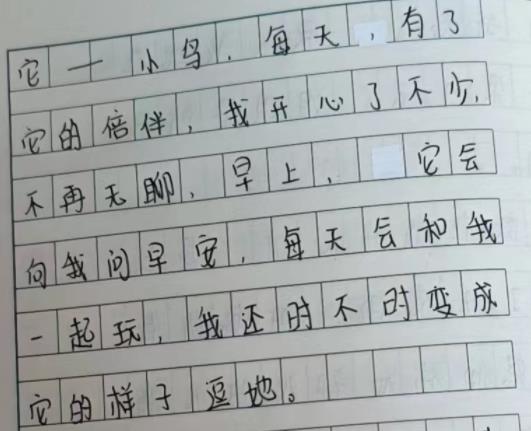 它一小鸟，每天，有了
它的倍伴，我开心了不少，
不再无聊，早上，它会
向我问早安，每天会和我
一起玩，我还时不时变成
它的样子逗她。